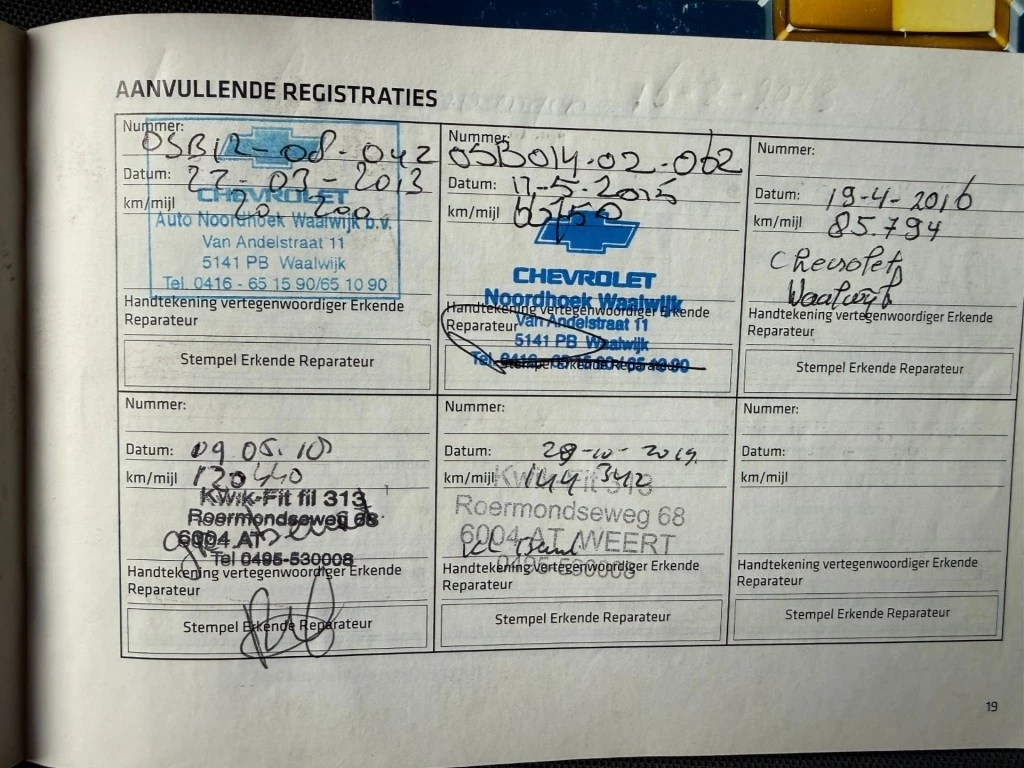 AANVULLENDE REGISTRATIES
Nummer:
OSB12-08-042
Datum: 22-03-2013
km/mijl 20 200
CHEVROLET
Auto Noordhoek Waalwijk b.v.
Van Andelstraat 11
5141 PB Waalwijk
Tel. 0416 - 65 15 90/65 10 90
Handtekening vertegenwoordiger Erkende
Reparateur
Stempel Erkende Reparateur
Nummer:
OSB014-02-062
Datum: 11-5-2015
km/mijl
CHEVROLET
Noordhoek Waalwijk
Handtekening vertegenwoordiger Erkende
Reparateur
Van Andelstraat 11
5141 PB Waalwijk
Tel. 0416 - 65 15 90 / 65 10 90
Stempel Erkende Reparateur
Nummer:
Datum: 19-4-2016
km/mijl 85.794
Chevrolet
Waalwijk
Handtekening vertegenwoordiger Erkende
Reparateur
Stempel Erkende Reparateur
Nummer:
Datum: 09 05.18
km/mijl 120440
Kwik-Fit fil 313
Roermondseweg 68
6004 AT
Tel 0495-530008
Handtekening vertegenwoordiger Erkende
Reparateur
Stempel Erkende Reparateur
Nummer:
Datum: 28-10-2019
km/mijl 144 342
Kwik-Fit 313
Roermondseweg 68
6004 AT WEERT
0495-530008
Handtekening vertegenwoordiger Erkende
Reparateur
Stempel Erkende Reparateur
Nummer:
Datum:
km/mijl
Handtekening vertegenwoordiger Erkende
Reparateur
Stempel Erkende Reparateur
19